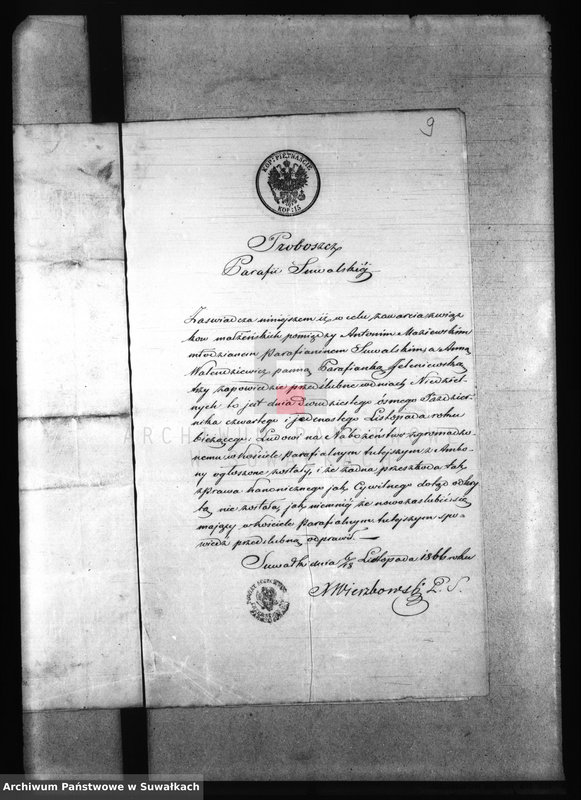 9
KOP: PIĘTNAŚCIE
KOP: 15
Proboszcz
Parafii Suwalskiéj
Zaświadcza niniejszem iż w celu zawarcia związ
ków małżeńskich pomiędzy Antonim Maziewskim
młodzianem Parafianinem Suwalskim, a Anną
Walendziewicz panną Parafianką Jeleniewską
trzy zapowiedzie przedślubne w dniach Niedziel
nych to jest dnia dwudziestego ósmego Paździer
nika czwartego i jedenastego Listopada roku
bieżącego, Ludowi na Nabożeństwo zgromadzo
nemu w kościele Parafialnym tutejszym z Ambo
ny ogłoszone zostały, i że żadna przeszkoda tak
z prawa kanonicznego jak Cywilnego dotąd odkry
tą nie została, jak niemniéj że nowozaślubić się
mający w kościele Parafialnym tutejszym spo
wiedź przedślubną odprawił
Suwałki dnia Listopada 1866 roku
X Wierzbowski P. S.
Archiwum Państwowe w Suwałkach